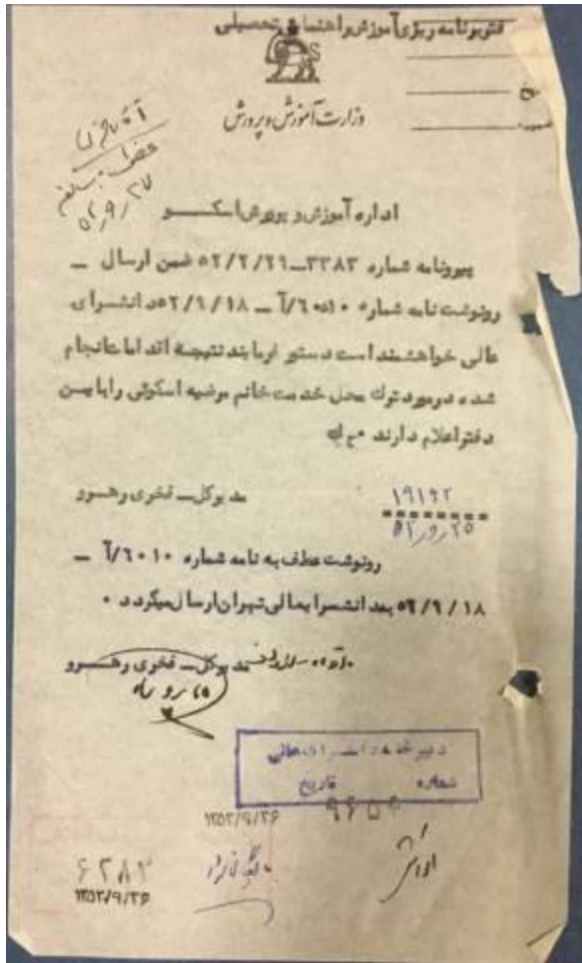 دفتر برنامه ریزی آموزش و راهنمائی تحصیلی
وزارت آموزش و پرورش
۵۲/۹/۲۷
اداره آموزش و پرورش اسکو
پیرونامه شماره ۳۳۸۳ــ۵۲/۲/۲۶ ضمن ارسال ــ
رونوشت نامه شماره ۶۰۱۰/آ ــ ۵۲/۹/۱۸ دانشسرای
عالی خواهشمند است دستور فرمایند نتیجه اقداماتانجام
شده درمورد ترك محل خدمت خانم مرضیه اسکوئی رابایسن
دفتراعلام دارند ۰
مدیرکل ــ فخری رهسرو
۱۹۱۹۲
۵۲/۹/۲۵
رونوشت عطف به نامه شماره ۶۰۱۰/آ ــ
۵۲/۹/۱۸ بدانشسرایعالی تهران ارسال میگردد ۰
مدیرکل ــ فخری رهسرو
دبیرخانه دانشسرایعالی
شماره تاریخ
۹۶۵۴
۱۳۵۲/۹/۲۶
۶۲۸۳
۱۳۵۲/۹/۲۶